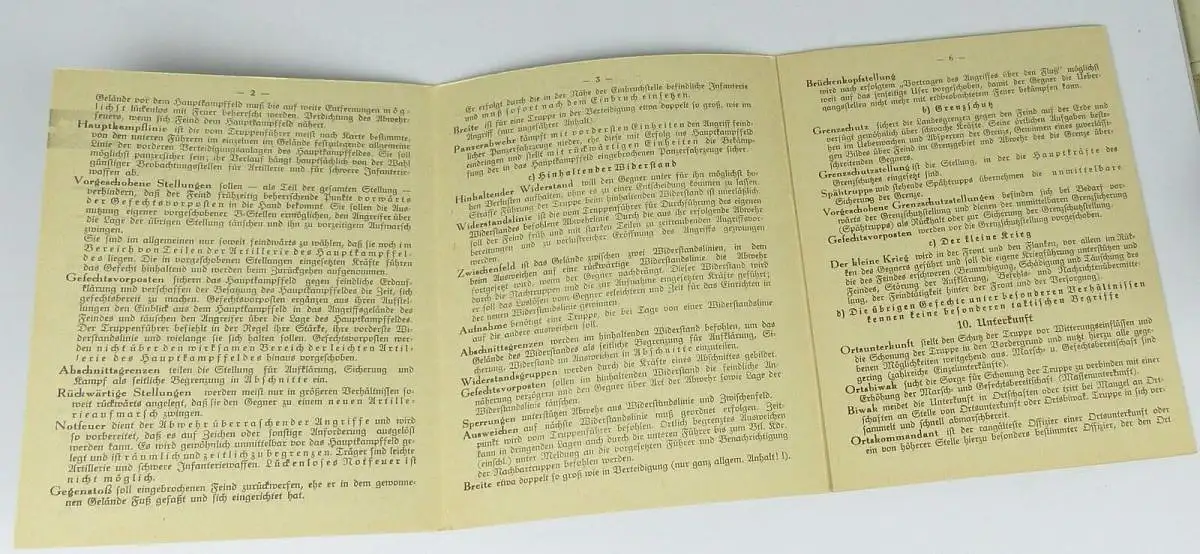 — 2 —
Gelände vor dem Hauptkampffeld muß bis auf weite Entfernungen mög-
lichst lückenlos mit Feuer beherrscht werden. Verdichtung des Abwehr-
feuers, wenn sich Feind dem Hauptkampffeld nähert.
Hauptkampflinie ist die vom Truppenführer meist nach Karte bestimmte,
von den unteren Führern im einzelnen im Gelände festzulegende allgemeine
Linie der vorderen Verteidigungsanlagen des Hauptkampffeldes. Sie soll
möglichst panzersicher sein; ihr Verlauf hängt hauptsächlich von der Wahl
günstiger Beobachtungsstellen für Artillerie und für schwere Infanterie-
waffen ab.
Vorgeschobene Stellungen sollen — als Teil der gesamten Stellung —
verhindern, daß der Feind frühzeitig beherrschende Punkte vorwärts
der Gefechtsvorposten in die Hand bekommt. Sie sollen die Aus-
nutzung eigener vorgeschobener B-Stellen ermöglichen, den Angreifer über
die Lage der übrigen Stellung täuschen und ihn zu vorzeitigem Aufmarsch
zwingen.
Sie sind im allgemeinen nur soweit feindwärts zu wählen, daß sie noch im
Bereich von Teilen der Artillerie des Hauptkampffel-
des liegen. Die in vorgeschobenen Stellungen eingesetzten Kräfte führen
das Gefecht hinhaltend und werden beim Zurückgehen aufgenommen.
Gefechtsvorposten sichern das Hauptkampffeld gegen feindliche Erdauf-
klärung und verschaffen der Besatzung des Hauptkampffeldes die Zeit, sich
gefechtsbereit zu machen. Gefechtsvorposten ergänzen aus ihren Aufstel-
lungen den Einblick aus dem Hauptkampffeld in das Angriffsgelände des
Feindes und täuschen den Angreifer über die Lage des Hauptkampffeldes.
Der Truppenführer befiehlt in der Regel ihre Stärke, ihre vorderste Wi-
derstandslinie und wielange sie sich halten sollen. Gefechtsvorposten wer-
den nicht über den wirksamen Bereich der leichten Artil-
lerie des Hauptkampffeldes hinaus vorgeschoben.
Abschnittsgrenzen teilen die Stellung für Aufklärung, Sicherung und
Kampf als seitliche Begrenzung in Abschnitte ein.
Rückwärtige Stellungen werden meist nur in größeren Verhältnissen so-
weit rückwärts angelegt, daß sie den Gegner zu einem neuen Artille-
rieaufmarsch zwingen.
Notfeuer dient der Abwehr überraschender Angriffe und wird
so vorbereitet, daß es auf Zeichen oder sonstige Anforderung ausgelöst
werden kann. Es wird gewöhnlich unmittelbar vor das Hauptkampffeld ge-
legt und ist räumlich und zeitlich zu begrenzen. Träger sind leichte
Artillerie und schwere Infanteriewaffen. Lückenloses Notfeuer ist
nicht möglich.
Gegenstoß soll eingebrochenen Feind zurückwerfen, ehe er in dem gewonne-
nen Gelände Fuß gefaßt und sich eingerichtet hat.
— 3 —
Er erfolgt durch die in der Nähe der Einbruchstelle befindliche Infanterie
und muß sofort nach dem Einbruch einsetzen.
Breite ist für eine Truppe in der Verteidigung etwa doppelt so groß, wie im
Angriff (nur ungefährer Anhalt).
Panzerabwehr kämpft mit vordersten Einheiten den Angriff feind-
licher Panzerfahrzeuge nieder, ehe diese mit Erfolg ins Hauptkampffeld
eindringen und stellt mit rückwärtigen Einheiten die Bekämp-
fung der in das Hauptkampffeld eingebrochenen Panzerfahrzeuge sicher.
c) Hinhaltender Widerstand
Hinhaltender Widerstand will den Gegner unter für ihn möglichst ho-
hen Verlusten aufhalten, ohne es zu einer Entscheidung kommen zu lassen.
Straffe Führung der Truppe beim hinhaltenden Widerstand ist unerläßlich.
Widerstandslinie ist die vom Truppenführer für Durchführung des eigenen
Widerstandes befohlene Abwehrlinie. Durch die aus ihr erfolgende Abwehr
soll der Feind früh und mit starken Teilen zu zeitraubenden Angriffsvor-
bereitungen und zu verlustreicher Eröffnung des Angriffs gezwungen
werden.
Zwischenfeld ist das Gelände zwischen zwei Widerstandslinien, in dem
beim Ausweichen auf eine rückwärtige Widerstandslinie die Abwehr
fortgesetzt wird, wenn der Gegner nachdrängt. Dieser Widerstand wird
durch die Nachtruppen und die zur Aufnahme eingesetzten Kräfte geführt;
er soll das Loslösen vom Gegner erleichtern und Zeit für das Einrichten in
der neuen Widerstandslinie gewinnen.
Aufnahme benötigt eine Truppe, die bei Tage von einer Widerstandslinie
auf die andere ausweichen soll.
Abschnittsgrenzen werden im hinhaltenden Widerstand befohlen, um das
Gelände des Widerstandes als seitliche Begrenzung für Aufklärung, Si-
cherung, Widerstand und Ausweichen in Abschnitte einzuteilen.
Widerstandsgruppen werden durch die Kräfte eines Abschnittes gebildet.
Gefechtsvorposten sollen im hinhaltenden Widerstand die feindliche An-
näherung verzögern und den Gegner über Art der Abwehr sowie Lage der
Widerstandslinie täuschen.
Sperrungen unterstützen Abwehr aus Widerstandslinie und Zwischenfeld.
Ausweichen auf nächste Widerstandslinie muß geordnet erfolgen. Zeit-
punkt wird vom Truppenführer befohlen. Örtlich begrenztes Ausweichen
kann in dringenden Lagen auch durch die unteren Führer bis zum Btl. Kdr.
(einschl.) unter Meldung an die vorgesetzten Führer und Benachrichtigung
der Nachbartruppen befohlen werden.
Breite etwa doppelt so groß wie in Verteidigung (nur ganz allgem. Anhalt!).
— 6 —
Brückenkopfstellung
wird nach erfolgtem „Vortragen des Angriffes über den Fluß" möglichst
weit auf das jenseitige Ufer vorgeschoben, damit der Gegner die Ueber-
gangsstellen nicht mehr mit erdbeobachtetem Feuer bekämpfen kann.
b) Grenzschutz
Grenzschutz sichert die Landesgrenzen gegen den Feind auf der Erde und
verfügt gewöhnlich über schwache Kräfte. Seine örtlichen Aufgaben beste-
hen im Ueberwachen und Absperren der Grenze, Gewinnen eines zuverlässi-
gen Bildes über Feind im Grenzgebiet und Abwehr des die Grenze über-
schreitenden Gegners.
Grenzschutzstellung ist die Stellung, in der die Hauptkräfte des
Grenzschutzes eingesetzt sind.
Spähtrupps und stehende Spähtrupps übernehmen die unmittelbare
Sicherung der Grenze.
Vorgeschobene Grenzschutzstellungen befinden sich bei Bedarf vor-
wärts der Grenzschutzstellung und dienen der unmittelbaren Grenzsicherung
(Spähtrupps) als Rückhalt oder zur Sicherung der Grenzschutzstellung.
Gefechtsvorposten werden vor die Grenzschutzstellung vorgeschoben.
c) Der kleine Krieg
Der kleine Krieg wird in der Front und den Flanken, vor allem im Rük-
ken des Gegners geführt und soll die eigene Kriegführung unterstützen und
die des Feindes erschweren (Beunruhigung, Schädigung und Täuschung des
Feindes, Störung der Aufklärung, Befehls- und Nachrichtenübermitte-
lung, der Feindtätigkeit hinter der Front und der Versorgung).
d) Die übrigen Gefechte unter besonderen Verhältnissen
kennen keine besonderen taktischen Begriffe
10. Unterkunft
Ortsunterkunft stellt den Schutz der Truppe vor Witterungseinflüssen und
die Schonung der Truppe in den Vordergrund und nutzt hierzu alle gege-
benen Möglichkeiten weitgehend aus. Marsch- u. Gefechtsbereitschaft sind
gering (zahlreiche Einzelunterkünfte).
Ortsbiwak sucht die Sorge für Schonung der Truppe zu verbinden mit einer
Erhöhung der Marsch- und Gefechtsbereitschaft (Massenunterkunft).
Biwak meidet die Unterkunft in Ortschaften oder tritt bei Mangel an Ort-
schaften an Stelle von Ortsunterkunft oder Ortsbiwak. Truppe in sich ver-
sammelt und schnell abmarschbereit.
Ortskommandant ist der rangälteste Offizier einer Ortsunterkunft oder
ein von höherer Stelle hierzu besonders bestimmter Offizier, der den Ort